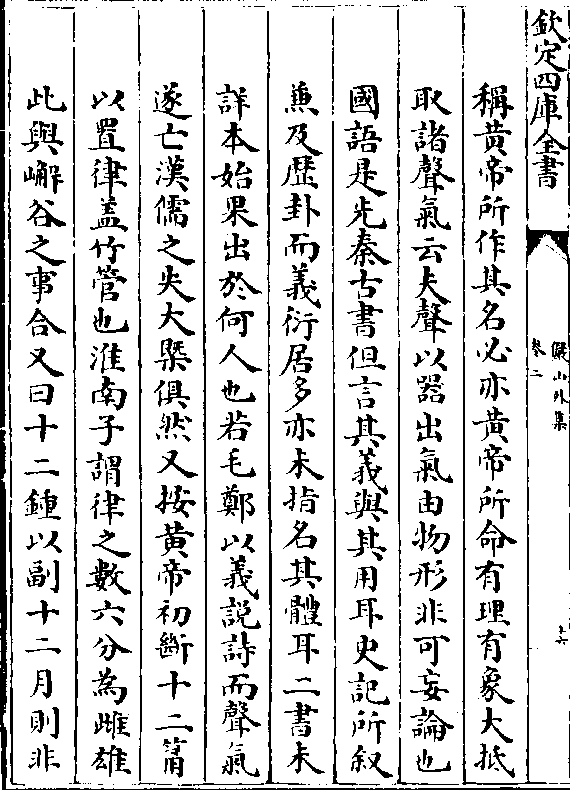 欽定四庫全書
儼山外集
卷二
稱黄帝所作其名必亦黄帝所命有理有象大抵
取諸聲氣云夫聲以器出氣由物形非可妄論也
國語是先秦古書但言其義與其用耳史記所叙
兼及歴卦而義衍居多亦未指名其體耳二書未
詳本始果出於何人也若毛鄭以義説詩而聲氣
遂亡漢儒之失大槩俱然又按黄帝初斷十二筩
以置律盖竹管也淮南子謂律之數六分為雌雄
此與嶰谷之事合又曰十二鍾以副十二月則非